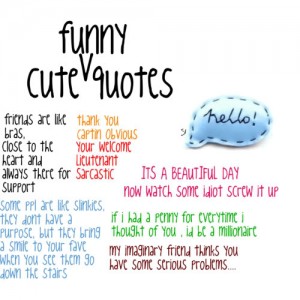 funny
cute quotes
hello!
friends are like
bras,
close to the
heart and
always there for
support
thank you
captin obvious
Your welcome
Lieutenant
Sarcastic
ITS A BEAUTIFUL DAY
now watch some idiot screw it up
some ppl are like slinkies,
they dont have a
purpose, but they bring
a smile to your fave
when you see them go
down the stairs
if i had a penny for everytime i
thought of you , id be a millionaire
my imaginary friend thinks you
have some serious problems....